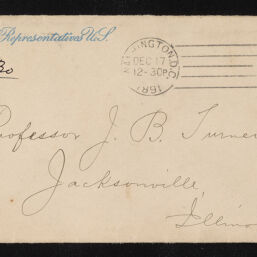 Representatives U.S.
WASHINGTON, D.C.
DEC 17
12-30P
Professor J. B. Turner
Jacksonville,
Illino